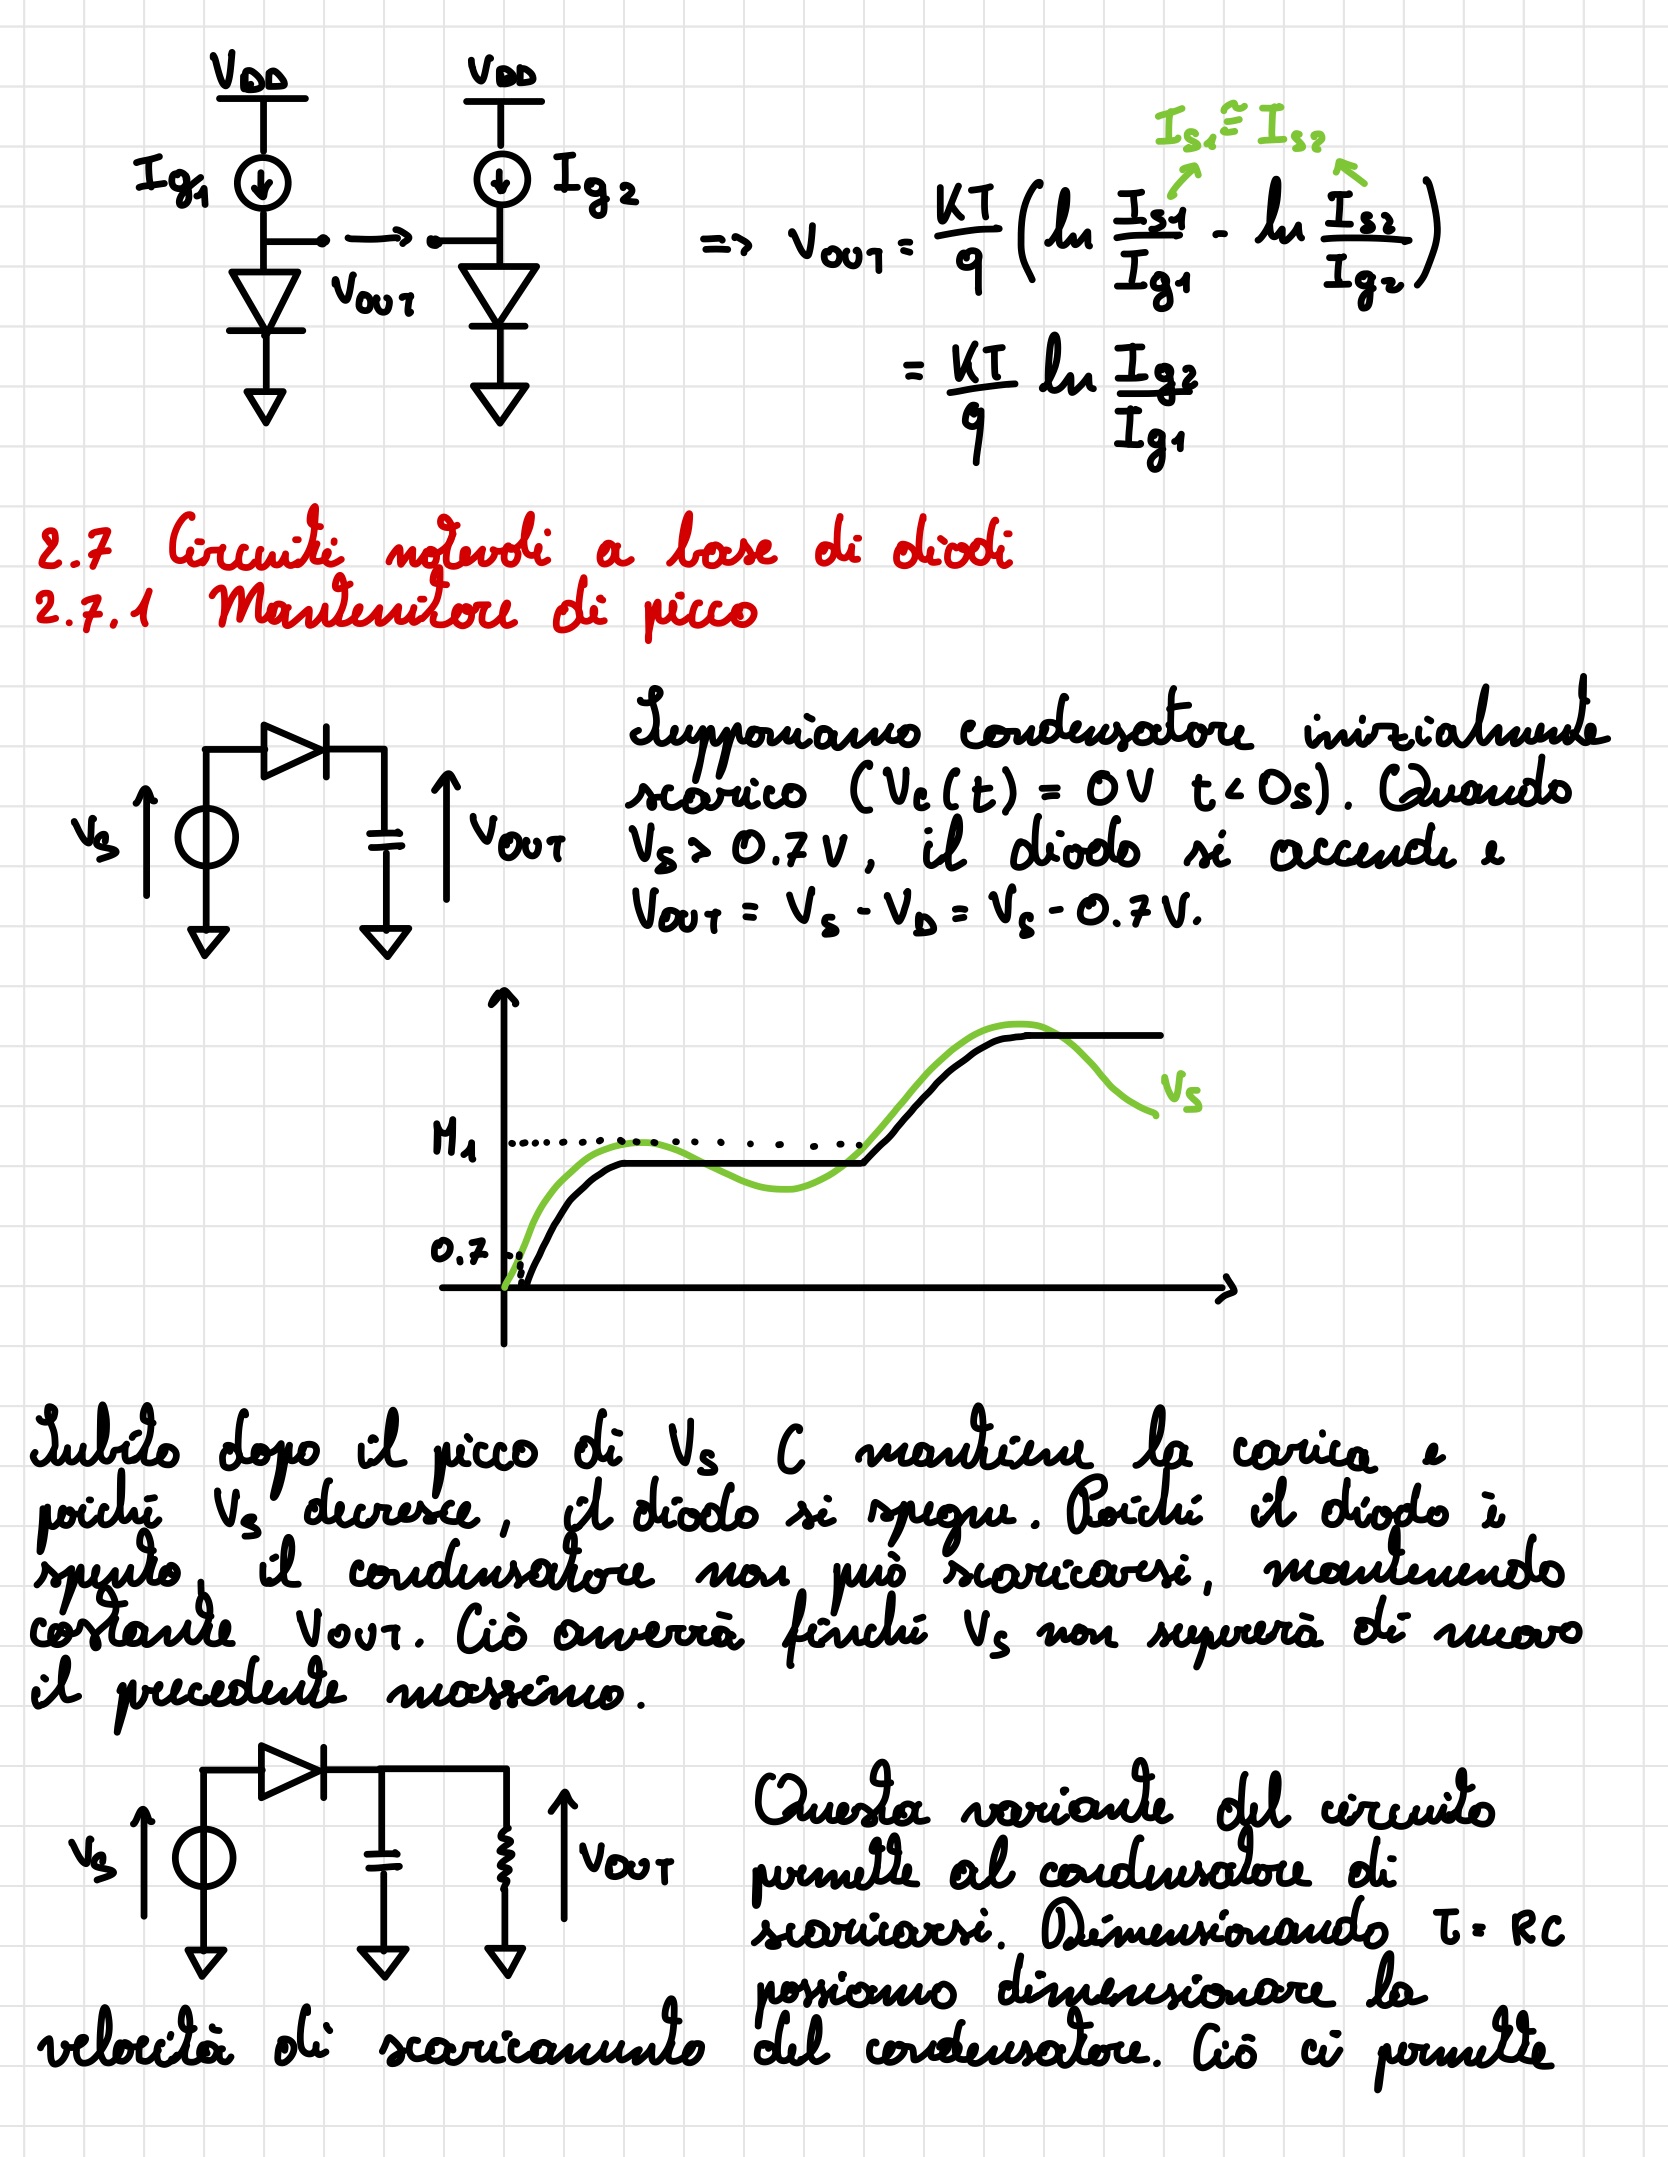 V_DD V_DD
I_g1 I_g2
V_OUT
I_s1 ≅ I_s2
=> V_OUT = KT/q (ln I_s1/I_g1 - ln I_s2/I_g2)
= KT/q ln I_g2/I_g1
2.7 Circuiti notevoli a base di diodi
2.7.1 Mantenitore di picco
V_S V_OUT
Supponiamo condensatore inizialmente
scarico (V_C(t) = 0V t < 0s). Quando
V_S > 0.7V, il diodo si accende e
V_OUT = V_S - V_D = V_S - 0.7V.
V_S
M_1
0.7
Subito dopo il picco di V_S C mantiene la carica e
poiché V_S decresce, il diodo si spegne. Poiché il diodo è
spento, il condensatore non può scaricarsi, mantenendo
costante V_OUT. Ciò avverrà finché V_S non supererà di nuovo
il precedente massimo.
V_S V_OUT
Questa variante del circuito
permette al condensatore di
scaricarsi. Dimensionando τ = RC
possiamo dimensionare la
velocità di scaricamento del condensatore. Ciò ci permette